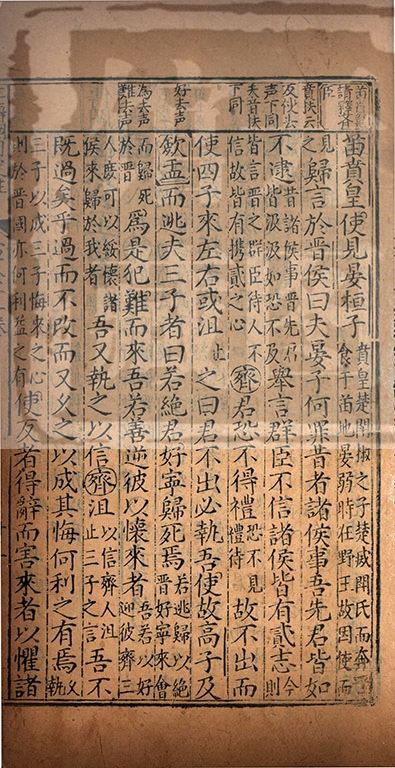 賁扶云
反使去
声下同
夫音扶
下同
好去声
為去声
難去声
苗賁皇使見晏桓子賁皇楚鬬椒之子楚滅鬬氏而奔
食于苗地晏弱時在野王故因使而
見之歸言於晉侯曰夫晏子何罪昔者諸侯事吾先君皆如
不逮昔諸侯事晉先君皆汲汲如恐不及舉言群臣不信諸侯皆有貳志今則
皆言晉之群臣待人不信故皆有攜貳之心齊君恐不得禮恐不見禮待故不出而
使四子來左右或沮止之曰君不出必執吾使故高子及
斂盂而逃夫三子者曰若絕君好寧歸死焉若逃歸以絕晉好寧來會
而歸死於晉為是犯難而來吾若善逆彼以懷來者吾若以好迎彼齊三
人庶可以綏懷諸侯來歸於我者吾又執之以信齊沮以信齊人沮止三子之言吾不
既過矣乎過而不改而又久之以成其悔何利之有焉久執
三子以成三子悔來之心則於晉國亦何利益之有使反者得辭而害來者以懼諸